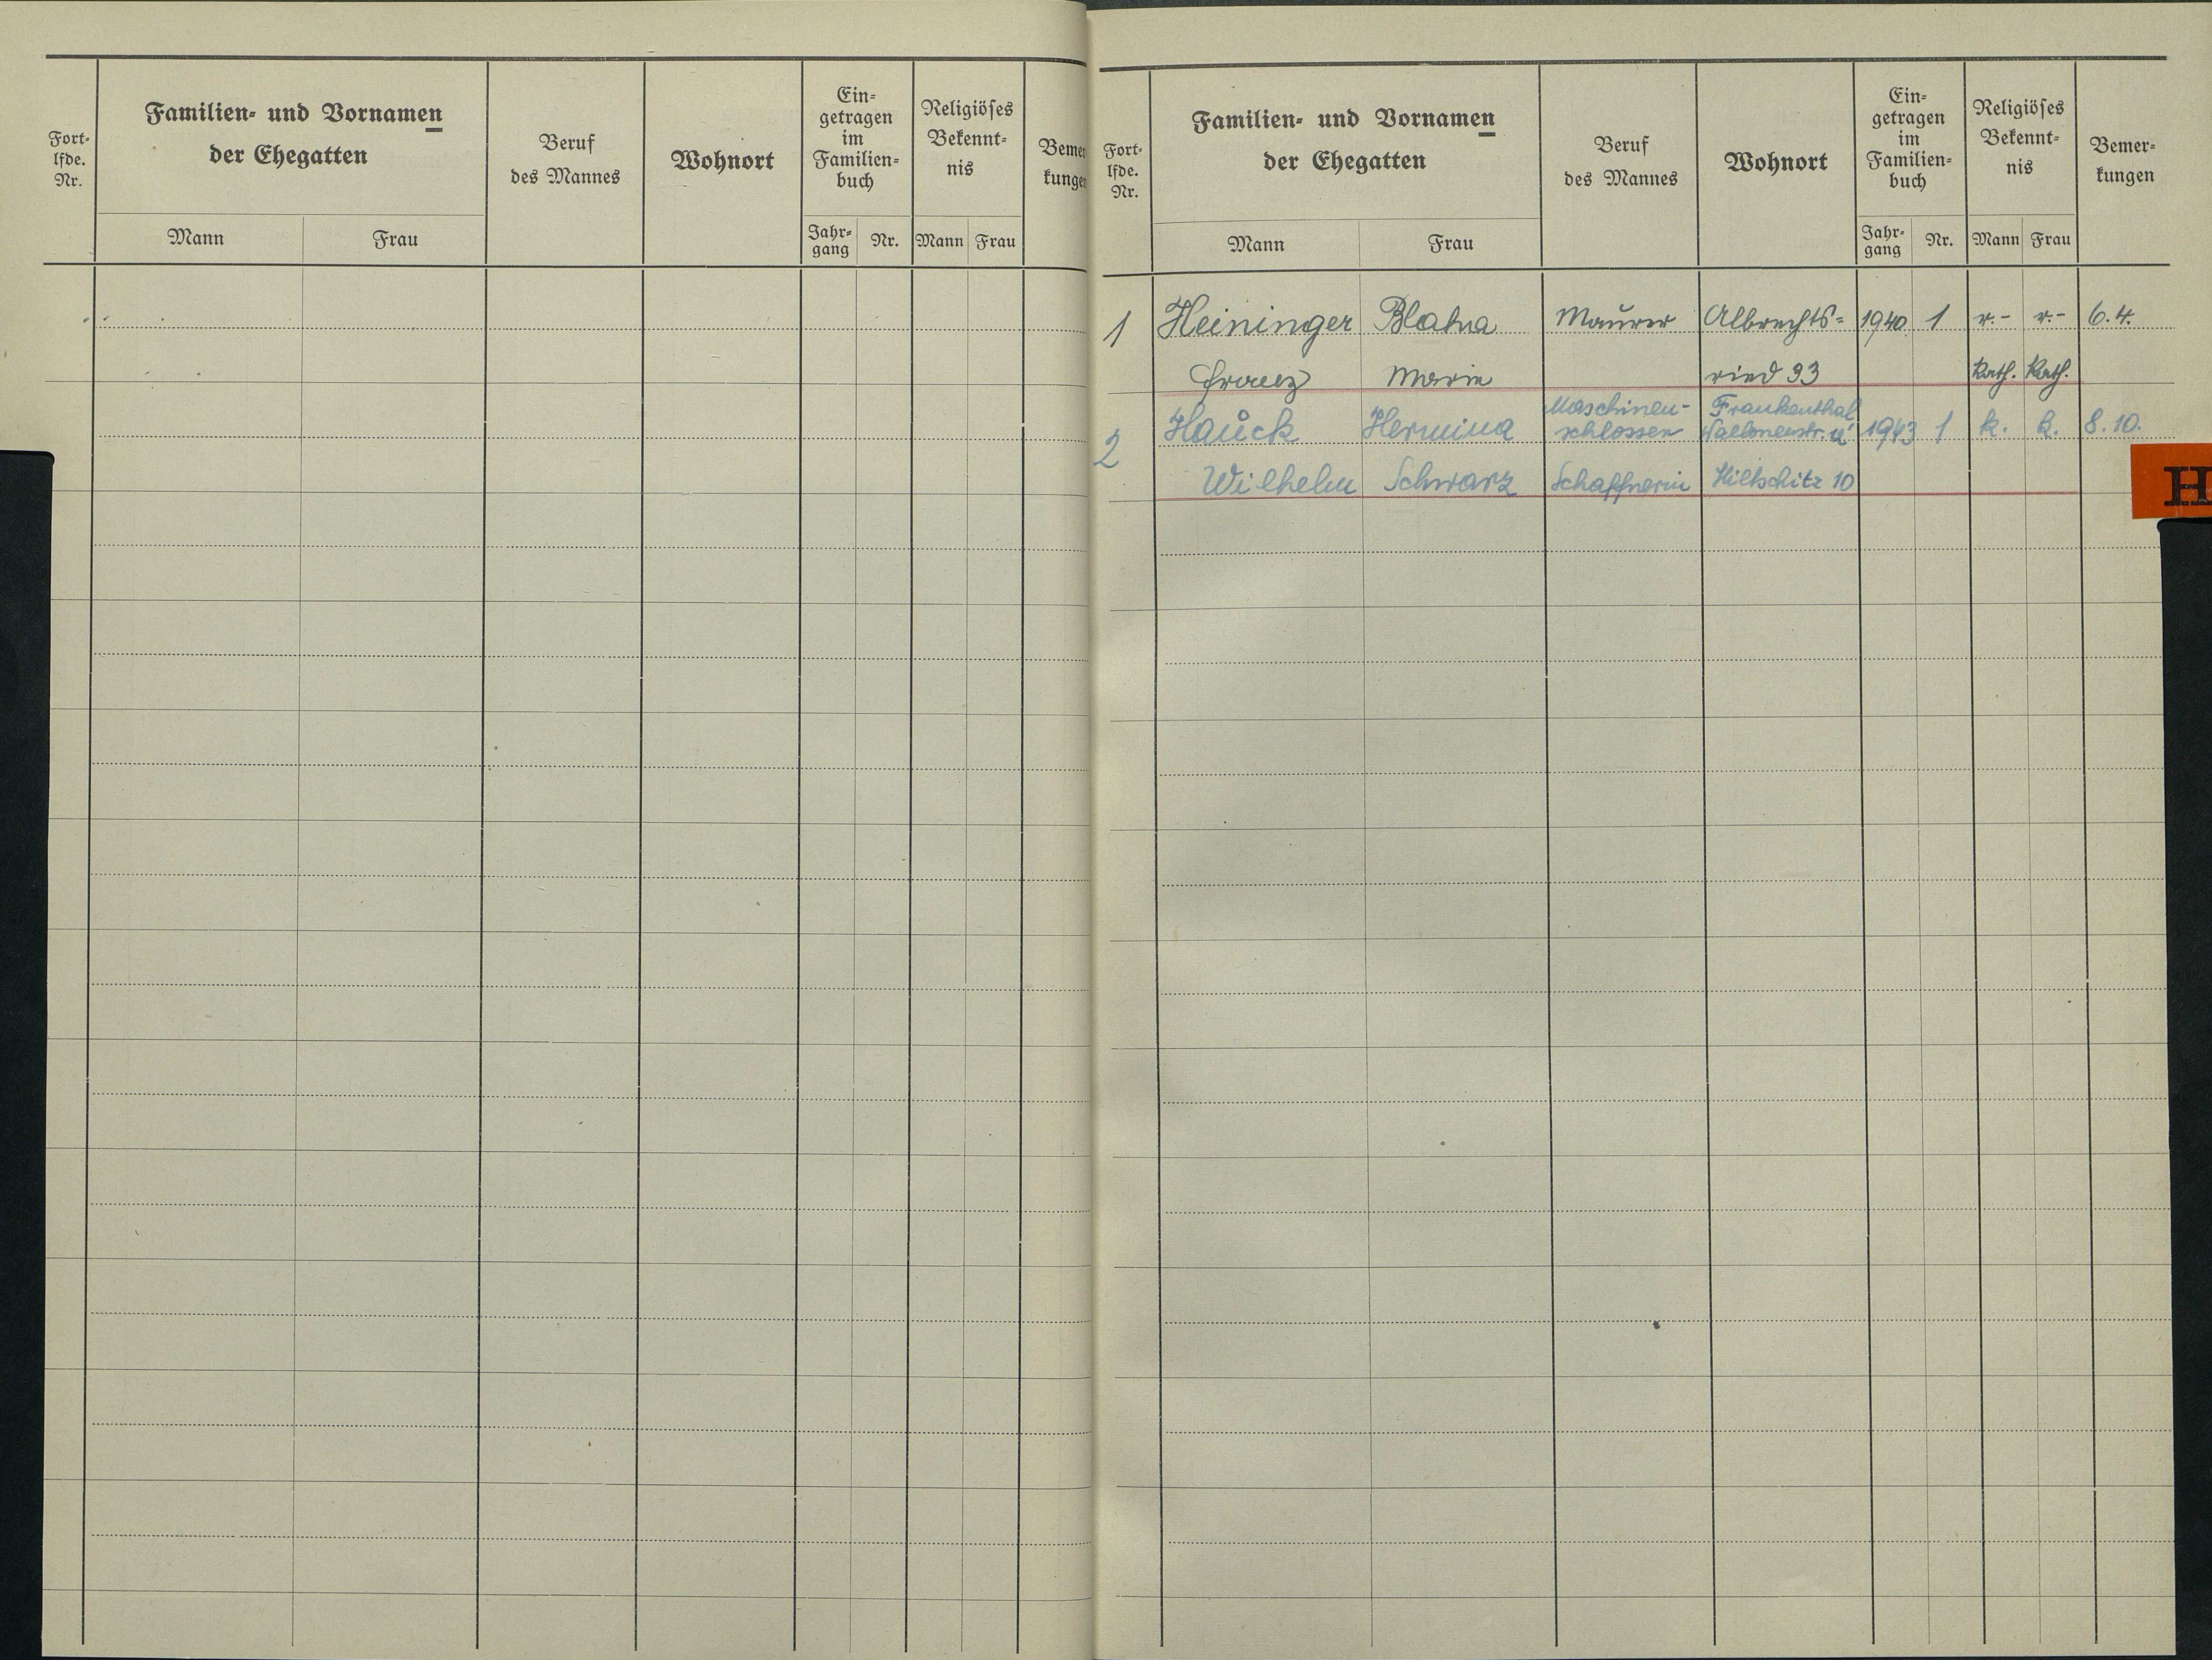 Fort-
lfde.
Nr.
Familien- und Vornamen
der Ehegatten
Mann Frau
Beruf
des Mannes
Wohnort
Ein-
getragen
im
Familien-
buch
Jahr-
gang Nr.
Religiöses
Bekennt-
nis
Mann Frau
Bemer
kungen
Fort-
lfde.
Nr.
Familien- und Vornamen
der Ehegatten
Mann Frau
Beruf
des Mannes
Wohnort
Ein-
getragen
im
Familien-
buch
Jahr-
gang Nr.
Religiöses
Bekennt-
nis
Mann Frau
Bemer-
kungen
1 Heininger Blahna Maurer Albrechts- 1940 1 r.- r.- 6.4.
Franz Marie ried 93 Kath. Kath.
Maschinen- Frankenthal
2 Hauck Hermina schlosser 1943 1 k. k. 8.10.
Wilhelm Schwarz Schaffnerin Hiltschitz 10
H